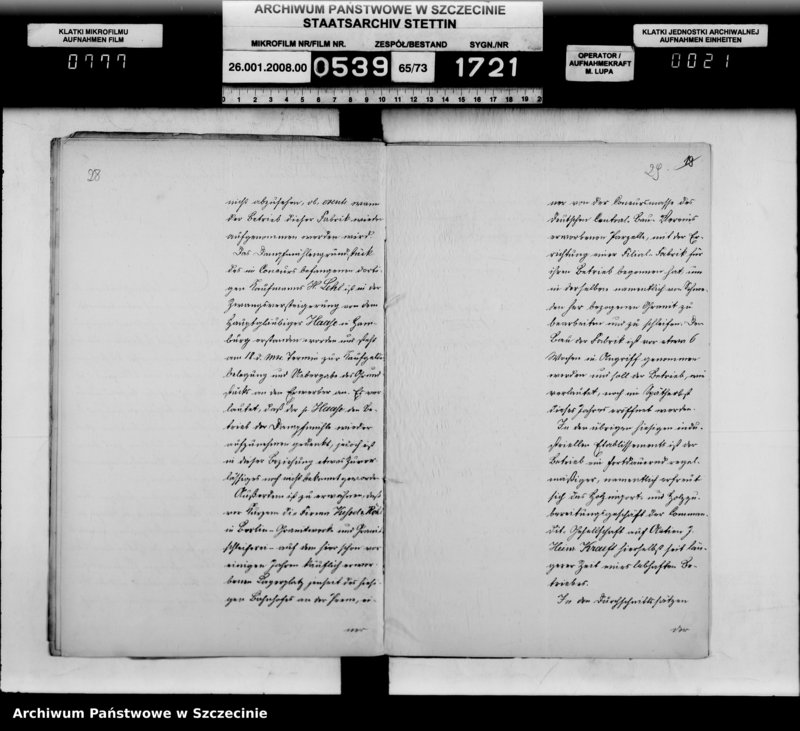 ARCHIWUM PAŃSTWOWE W SZCZECINIE
STAATSARCHIV STETTIN
KLATKI MIKROFILMU
AUFNAHMEN FILM
0777
MIKROFILM NR/FILM NR.
ZESPÓŁ/BESTAND
SYGN./NR
26.001.2008.00
0539
65/73
1721
OPERATOR /
AUFNAHMEKRAFT
M. LUPA
KLATKI JEDNOSTKI ARCHIWALNEJ
AUFNAHMEN EINHEITEN
0021
0 1 2 3 4 5 6 7 8 9 10 11 12 13 14 15 16 17 18 19 2
28
nicht abzusehen, ob event. wann
der Betrieb dieser Fabrik wieder
aufgenommen werden wird.
Das Dampfmühlengrundstück
des in Concurs befangenen dorti-
gen Kaufmanns W. ist in der
Zwangsversteigerung von dem
Hauptgläubiger Haase in Ham-
burg erstanden worden und steht
am 18. d. Mts. Termin zur Kaufgelder
belegung und Uebergabe des Grund
stücks an den Erwerber an. Es ver
lautet, daß der p. Haase den Be-
trieb der Dampfmühle wieder
aufzunehmen gedenkt, jedoch ist
in dieser Beziehung etwas Zuver
lässiges noch nicht bekannt geworden.
Außerdem ist zu erwähnen, daß
vor Kurzem die Firma Kessel & Röhl
in Berlin - Granitwerk und Granit
schleiferei - auf dem hier schon vor
einigen Jahren käuflich erwor-
benen Lagerplatz jenseit des hiesi-
gen Bahnhofes an der Peene, ei-
ner
29
ner von der Concursmasse des
deutschen Central-Bau-Vereins
erworbenen Parzelle, mit der Er-
richtung einer Filial-Fabrik für
ihren Betrieb begonnen hat, um
in derselben namentlich von Schwe-
den her bezogenen Granit zu
bearbeiten und zu schleifen. Der
Bau der Fabrik ist vor etwa 6
Wochen in Angriff genommen
worden und soll der Betrieb, wie
verlautet, noch im Spätherbst
dieses Jahres eröffnet werden.
In den übrigen hiesigen indu-
striellen Etablissements ist der
Betrieb ein fortdauernd regel-
mäßiger, namentlich erfreut
sich das Holzimport- und Holzzu-
bereitungsgeschäft der Comman-
dit-Gesellschaft auf Actien J.
Heinr. Kraeft hierselbst seit län-
gerer Zeit eines lebhaften Be-
triebes.
In den Durchschnittssätzen
der
Archiwum Państwowe w Szczecinie